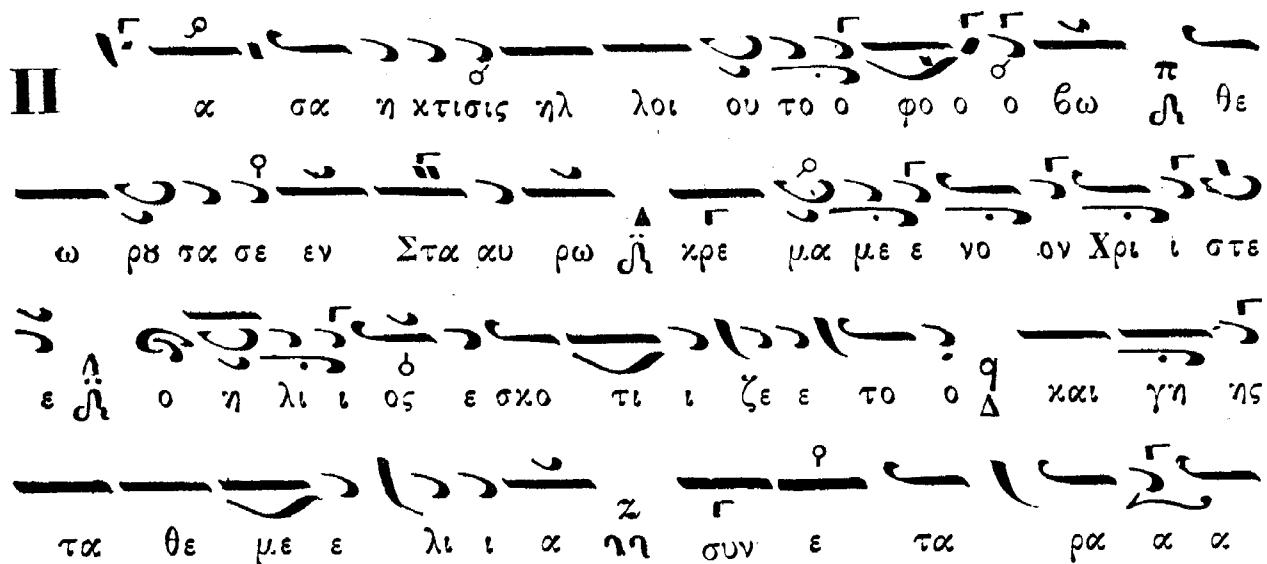 Π α σα η κτισις ηλ λοι ου το ο φο ο ο βω π θε
ω ρȣ σα σε εν Στα αυ ρω Δ κρε μα με ε νο ον Χρι ι στε
ε Λ ο η λι ι ος ε σκο τι ι ζε ε το ο q Δ και γη ης
τα θε με ε λι ι α Ζ συν ε τα ρα α α